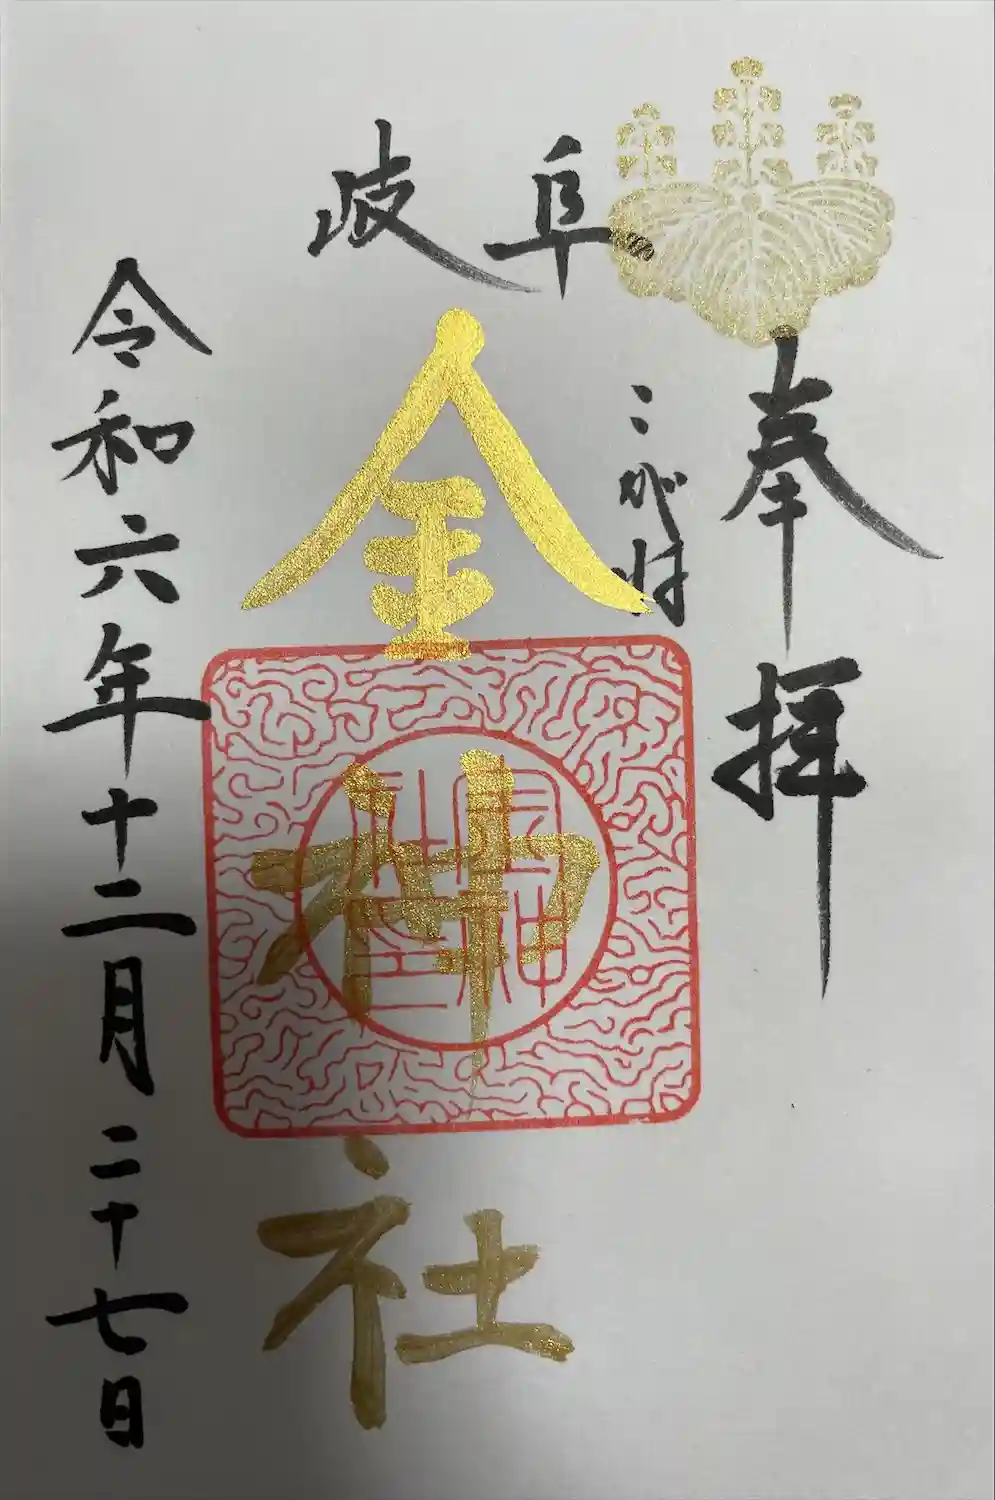 奉拝
岐阜
こがね
金神社
令和六年十二月二十七日